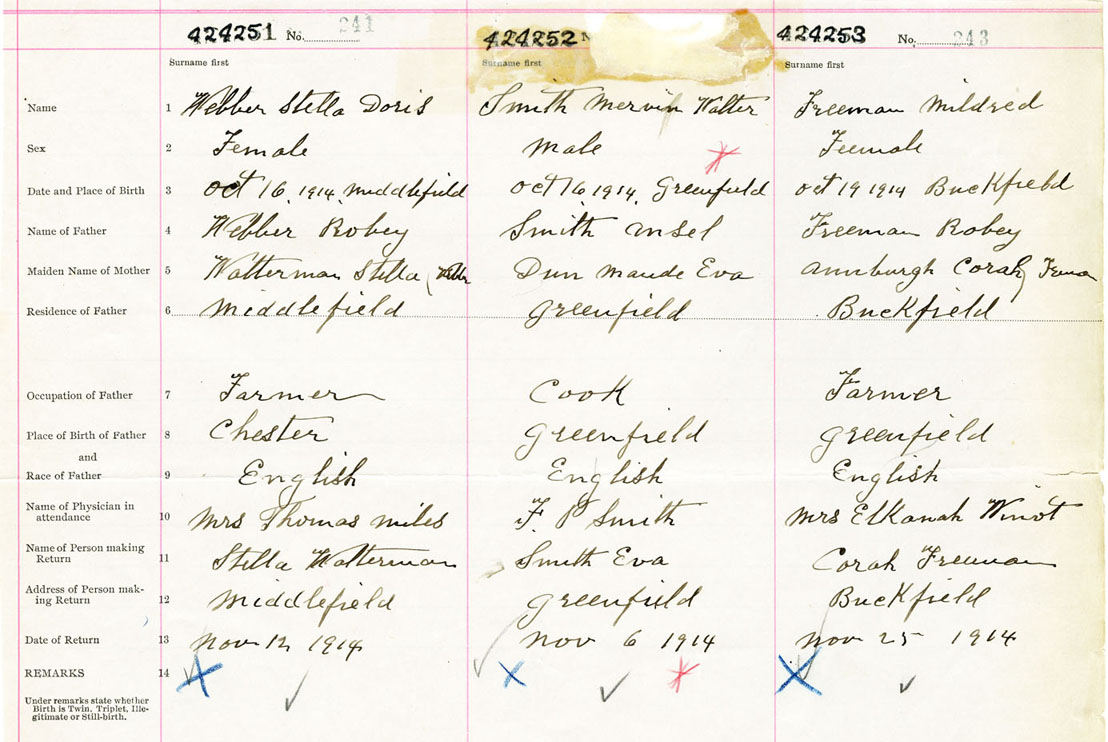 424251 No. 241 424252 N 424253 No. 243
Surname first Surname first Surname first
Name 1 Webber Stella Doris Smith Mervin Walter Freeman Mildred
Sex 2 Female Male Feemale
Date and Place of Birth 3 Oct 16, 1914, Middlefield Oct 16 1914, Greenfield Oct 19 1914 Buckfield
Name of Father 4 Webber Robey Smith Ansel Freeman Robey
Maiden Name of Mother 5 Walterman Stella (Webber Dun Maude Eva Corah)
Residence of Father 6 Middlefield Greenfield Buckfield
Occupation of Father 7 Farmer Cook Farmer
Place of Birth of Father 8 Chester Greenfield Greenfield
and
Race of Father 9 English English English
Name of Physician in
attendance 10 Mrs Thomas Miles F. P Smith Mrs Elkanah Winot
Name of Person making
Return 11 Stella Walterman Smith Eva Corah Freeman
Address of Person mak-
ing Return 12 Middlefield Greenfield Buckfield
Date of Return 13 Nov 12 1914 Nov 6 1914 Nov 25 1914
REMARKS 14
Under remarks state whether
Birth is Twin, Triplet, Ille-
gitimate or Still-birth.